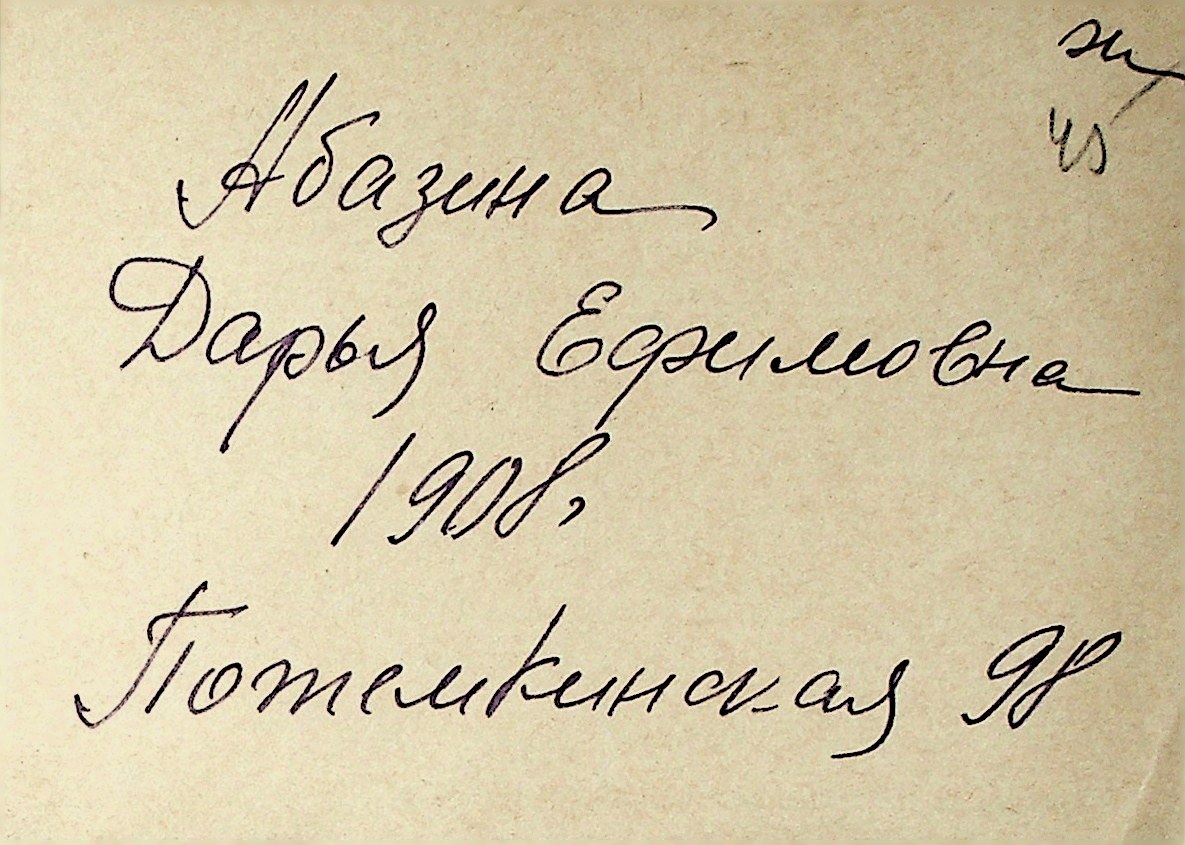 ж
45
Абазина
Дарья Ефимовна
1908,
Потемкинская 98